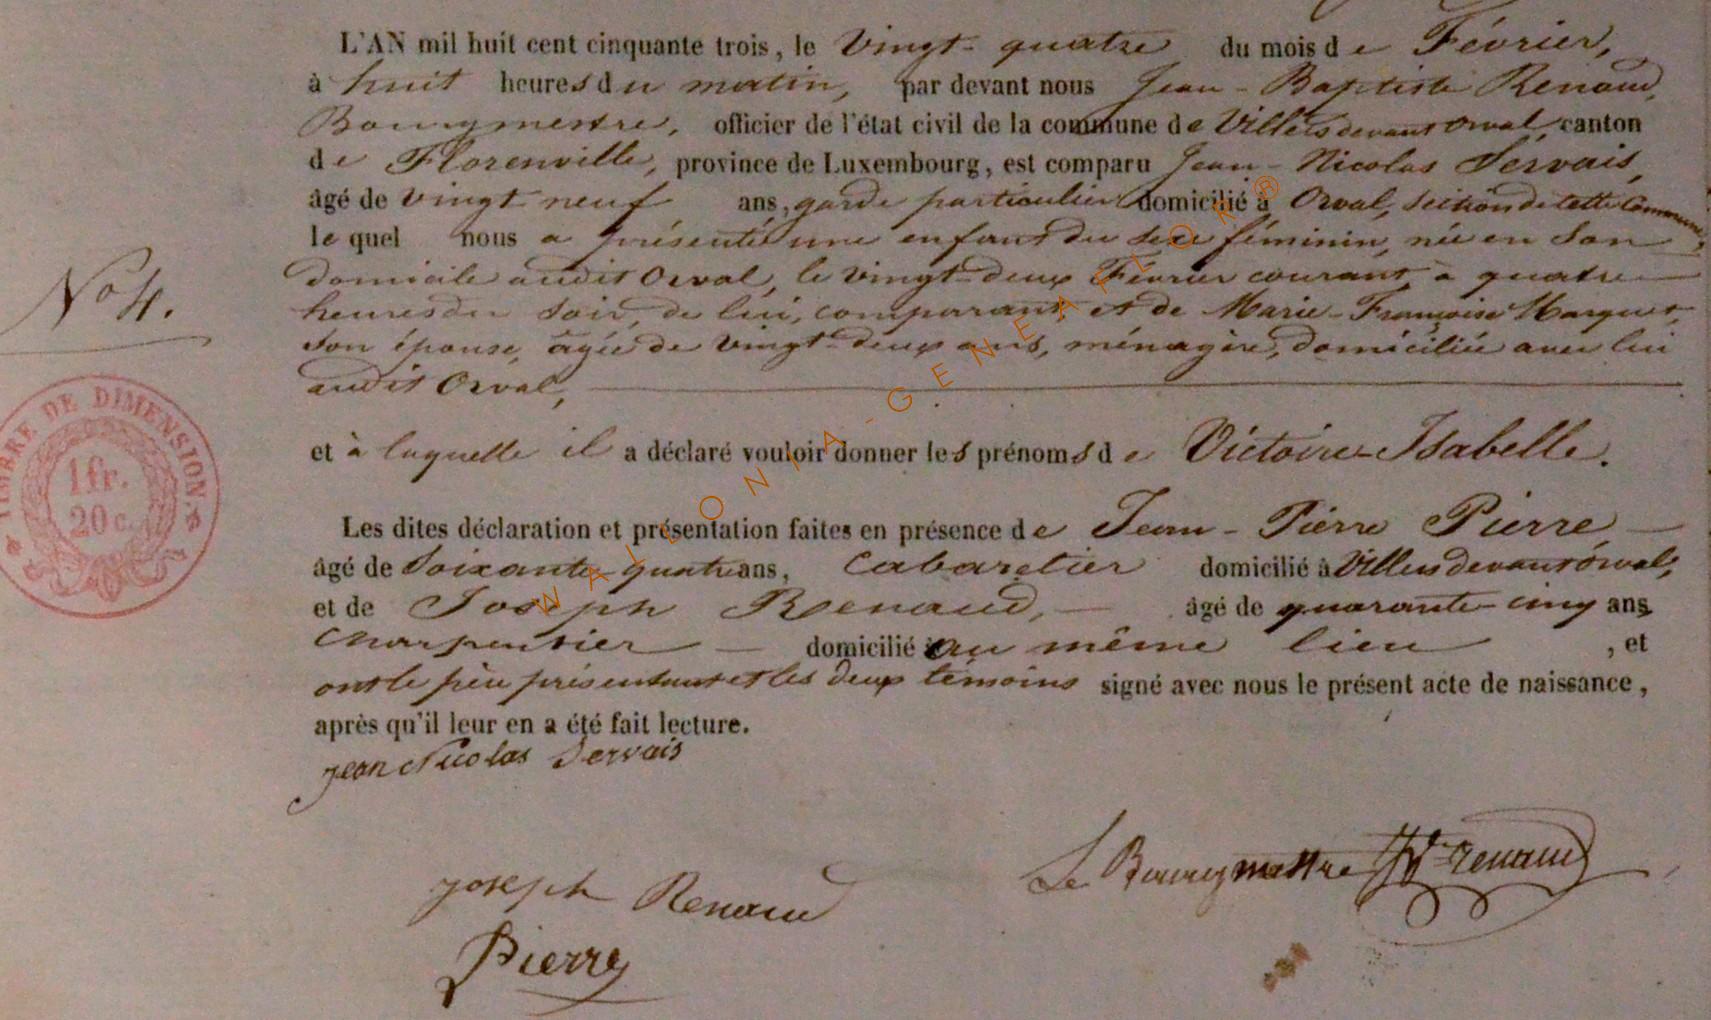 L'AN mil huit cent cinquante trois, le Vingt-quatre du mois de Février,
à huit heures du matin, par devant nous Jean-Baptiste Renaud,
Bourgmestre, officier de l'état civil de la commune de Villers devant Orval, canton
de Florenville, province de Luxembourg, est comparu Jean-Nicolas Servais,
âgé de vingt neuf ans, garde particulier domicilié à Orval, section de cette Commune,
le quel nous a présenté une enfant du sexe féminin, née en son
domicile audit Orval, le vingt-deux Février courant, à quatre
heures du soir, de lui, comparant, et de Marie-Françoise Marquet,
son épouse, âgée de vingt-deux ans, ménagère, domiciliée avec lui
audit Orval,
No 4.
TIMBRE DE DIMENSION.
1 fr.
20 c.
et à laquelle il a déclaré vouloir donner les prénoms de Victoire-Isabelle.
Les dites déclaration et présentation faites en présence de Jean-Pierre Pierre
âgé de Soixante-quatre ans, Cabaretier domicilié à Villers devant Orval,
et de Joseph Renaud, âgé de quarante-cinq ans
Charpentier domicilié au même lieu, et
ont le père présentant et les deux témoins signé avec nous le présent acte de naissance,
après qu'il leur en a été fait lecture.
jean Nicolas Servais
Le Bourgmestre Renaud
joseph Renaud
Pierre
WALLONIA-GENEAFLOK®